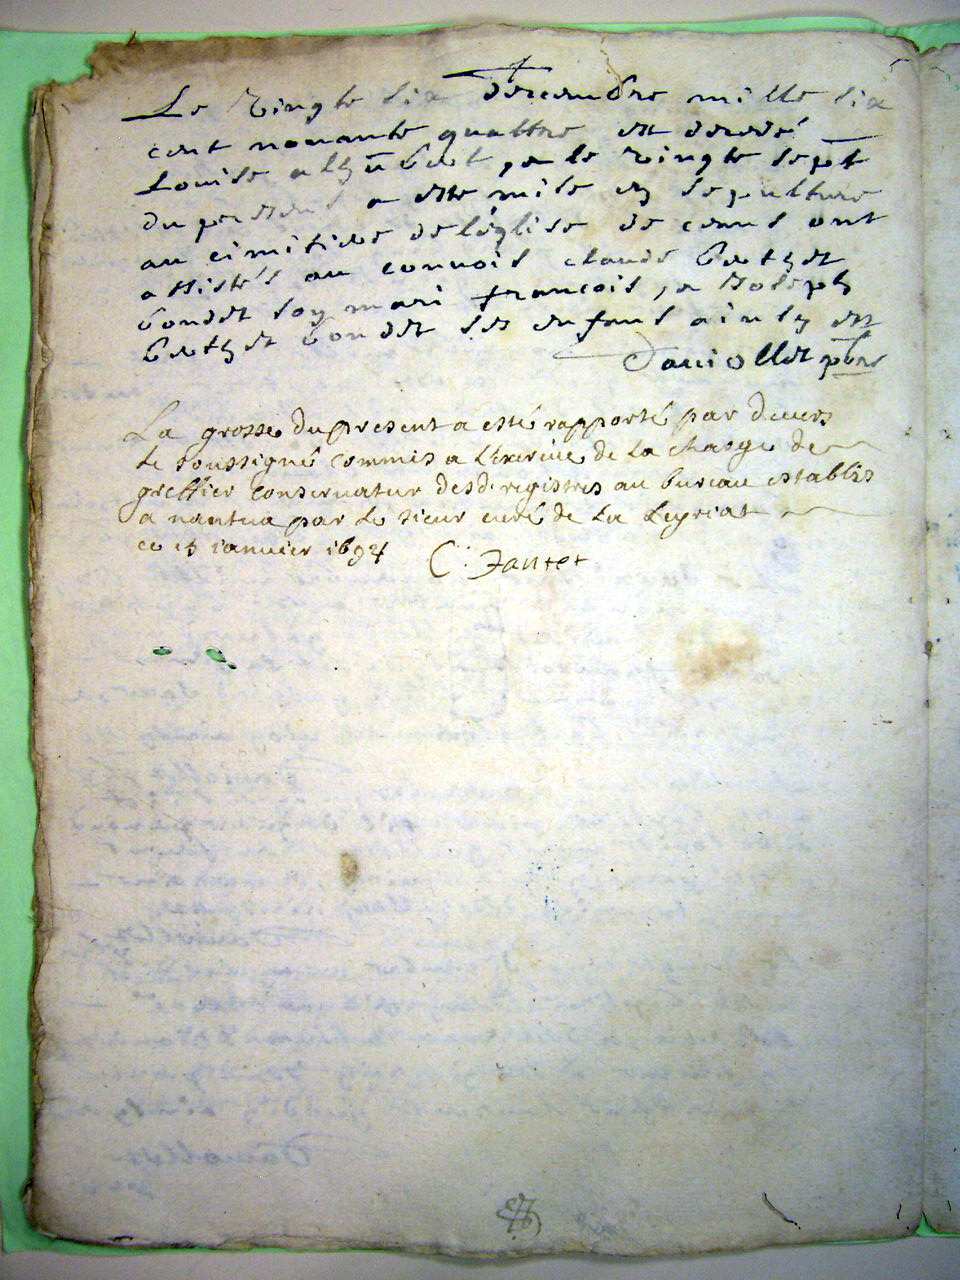 Le vingte six decembre mille six
cent nonante quattre est decedé
Louise du
du present a este mise en sepulture
au cimitiere de léglise de ceans ont
assistés au convois claude berthet
bondet son mari francois, Joseph
berthet bondet ses enfans ainsy est
Daniollet pbre
La grosse du present a esté rapporté par devers
le soussigné commis a lexercice de la charge de
greffier conservateur desd registres au bureau establis
a nantua par le sieur curé de la Leyriat
ce 15 ianvier 1694 C. Jantet